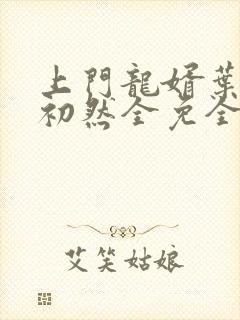 上門龍婿葉
初然全免全
艾笑姑娘